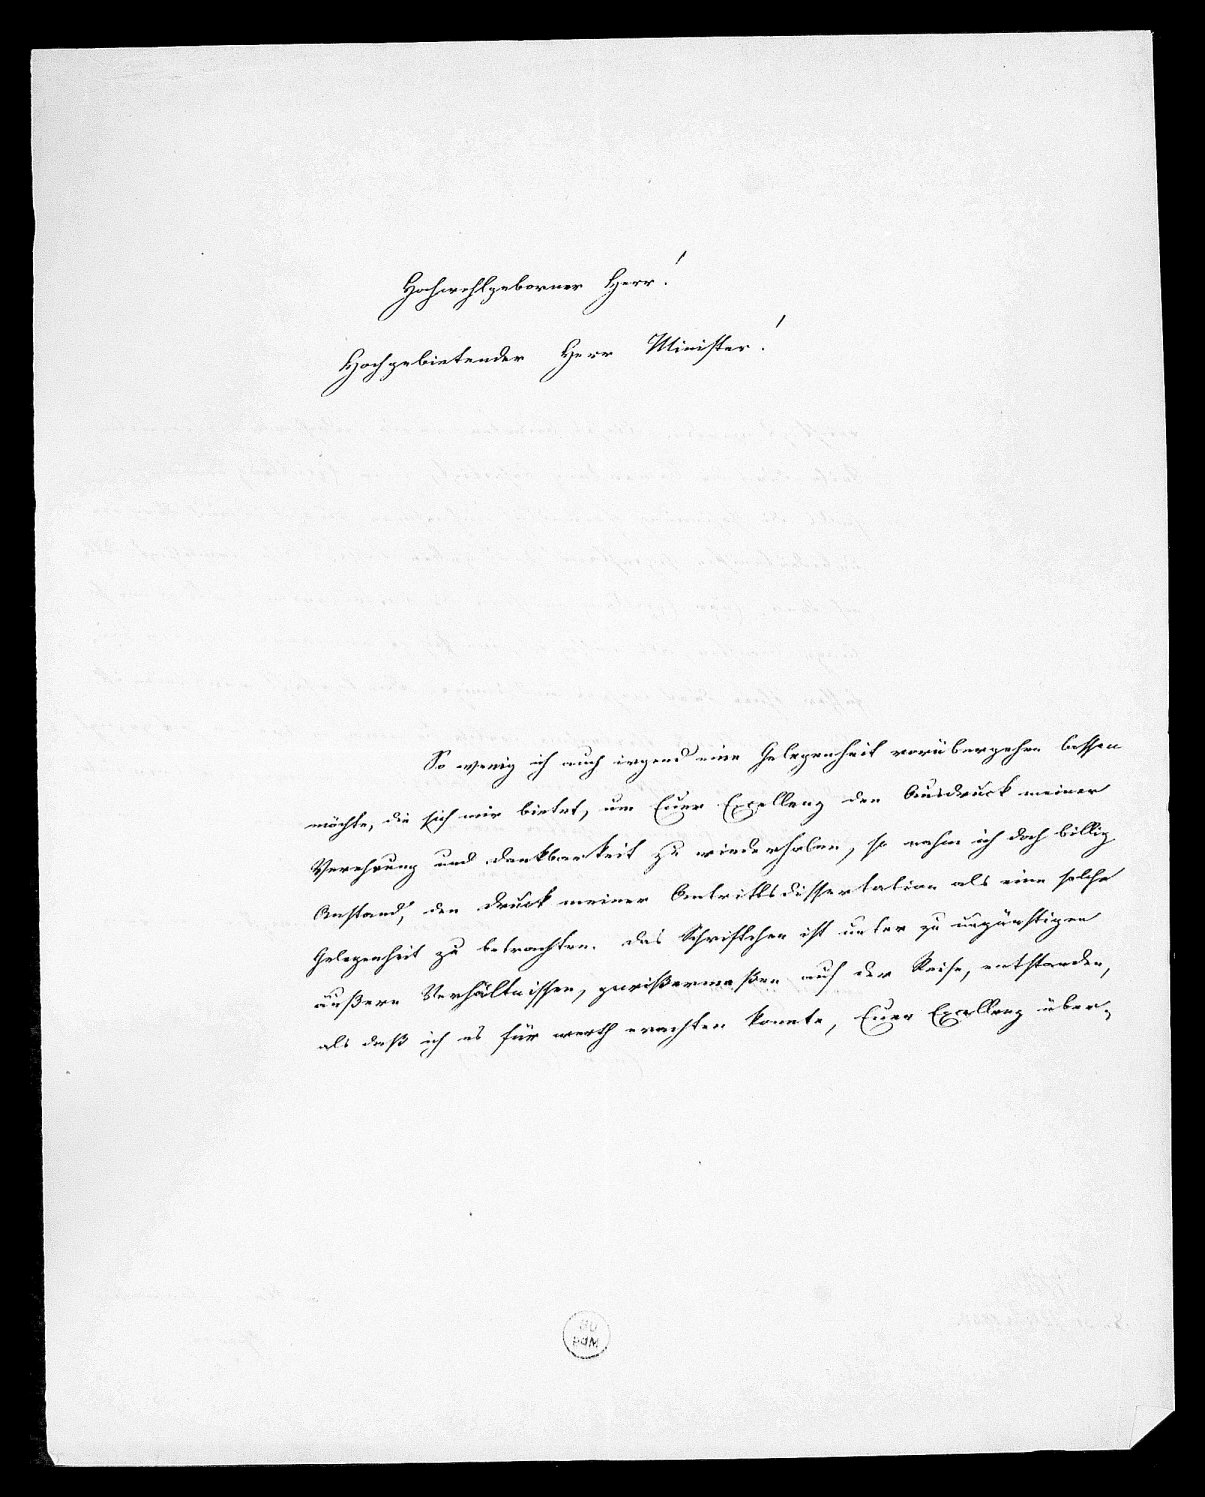 Hochwohlgeborner Herr!
Hochgebietender Herr Minister!
So wenig ich auch irgend eine Gelegenheit vorübergehen lassen
möchte, die sich mir bietet, um Euer Excellenz den Ausdruck meiner
Verehrung und Dankbarkeit zu wiederholen, so nahm ich doch billig
Anstand, den Druck meiner Antrittsdissertation als eine solche
Gelegenheit zu betrachten. Das Schriftchen ist unter zu ungünstigen
äußern Verhältnissen, gewißermaßen auf der Reise, entstanden,
als daß ich es für werth erachten konnte, Euer Excellenz über-